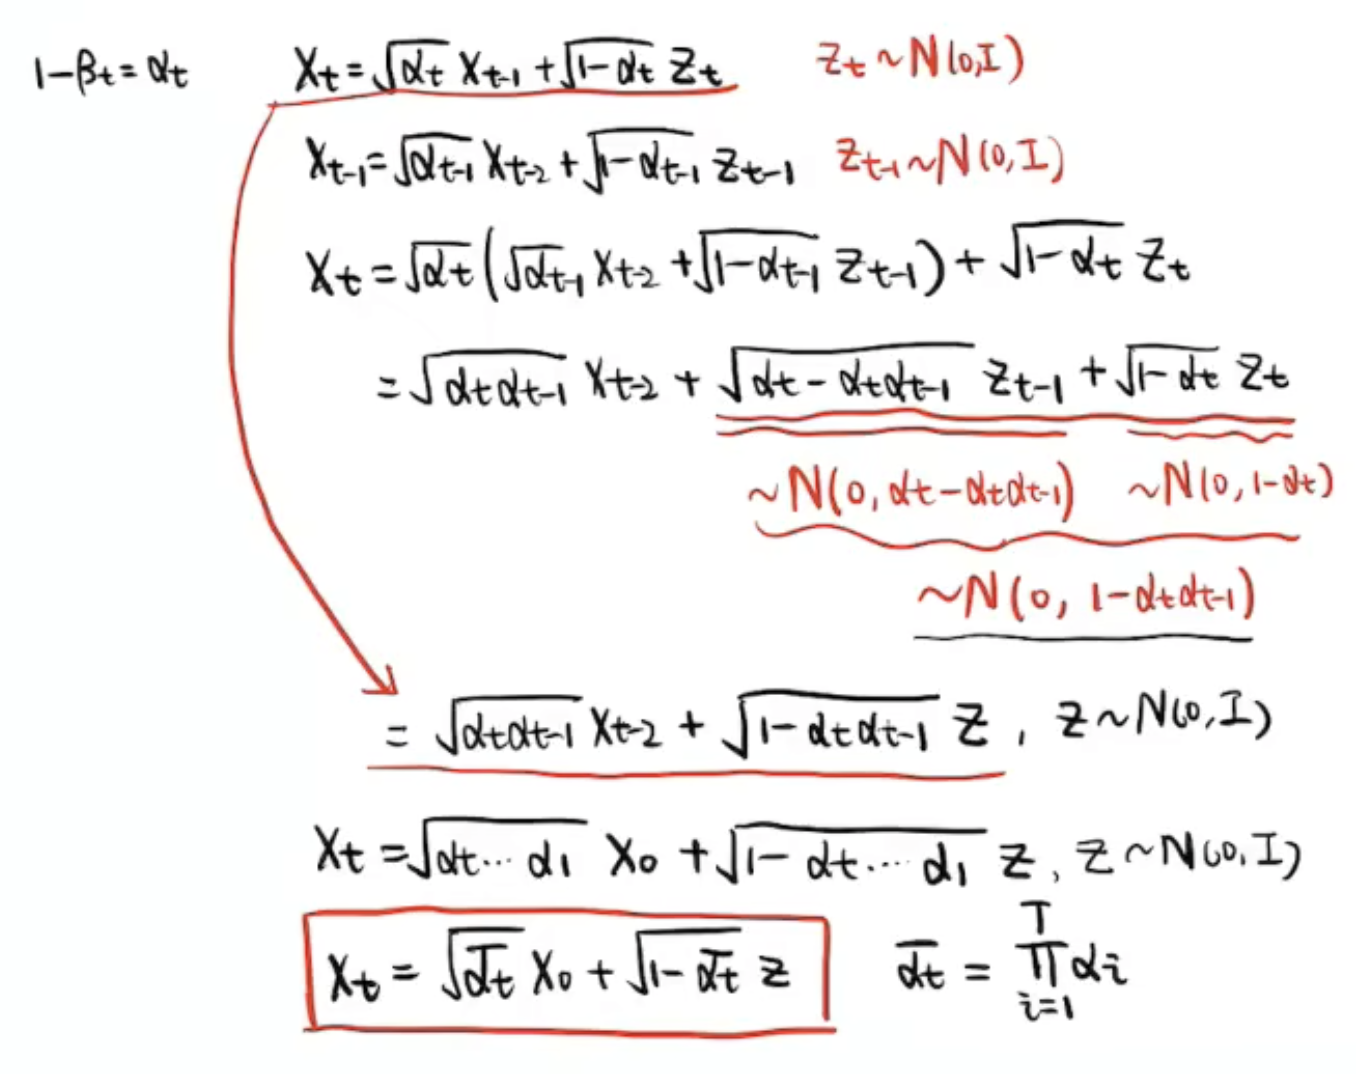 1-βt=αt   Xt=√(αt) Xt-1 + √(1-αt) Zt   Zt ~ N(0,I)
Xt-1=√(αt-1) Xt-2 + √(1-αt-1) Zt-1   Zt-1 ~ N(0,I)
Xt=√(αt) (√(αt-1) Xt-2 + √(1-αt-1) Zt-1) + √(1-αt) Zt
=√(αtαt-1) Xt-2 + √(αt-αtαt-1) Zt-1 + √(1-αt) Zt
~N(0, αt-αtαt-1)   ~N(0, 1-αt)
~N(0, 1-αtαt-1)
= √(αtαt-1) Xt-2 + √(1-αtαt-1) Z , Z~N(0,I)
Xt=√(αt⋯α1) X0 + √(1-αt⋯α1) Z, Z~N(0,I)
Xt = √(ᾱt) X0 + √(1-ᾱt) Z   ᾱt = ∏_{i=1}^{T} αi